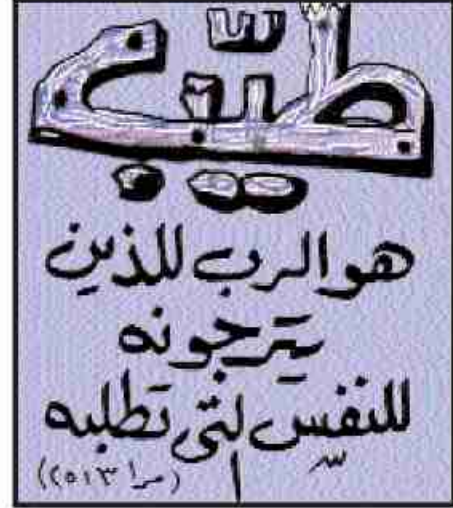 طيّب
هو الرب للذين
يترجونه
للنفس التى تطلبه
(مرا ٣ : ٢٥)